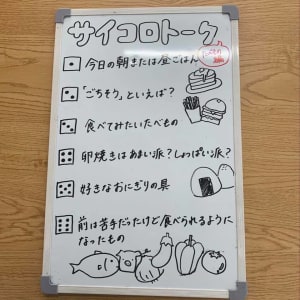 サイコロトーク
今日の朝または昼ごはん
「ごちそう」といえば?
食べてみたいたべもの
卵焼きはあまい派?しょっぱい派?
好きなおにぎりの具
前は苦手だったけど食べられるように
なったもの